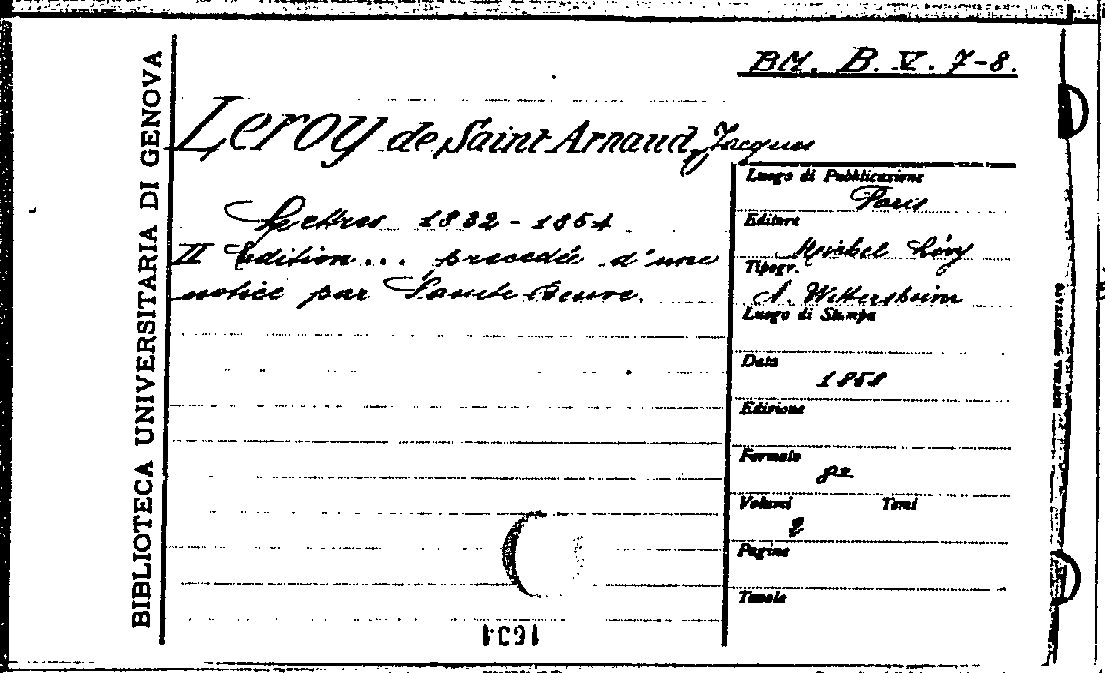 BIBLIOTECA UNIVERSITARIA DI GENOVA
BM. B. V. 7-8.
Leroy de Saint Arnaud, Jacques
Lettres 1832-1854
II Edition... précedée d'une
notice par Sainte-Beuve.
Luogo di Pubblicazione
Paris
Editore
Michel Lévy
Tipogr.
A. Wittersheim
Luogo di Stampa
Data
1858
Edizione
Formato
8º
Volumi Tomi
2
Pagine
Tavole